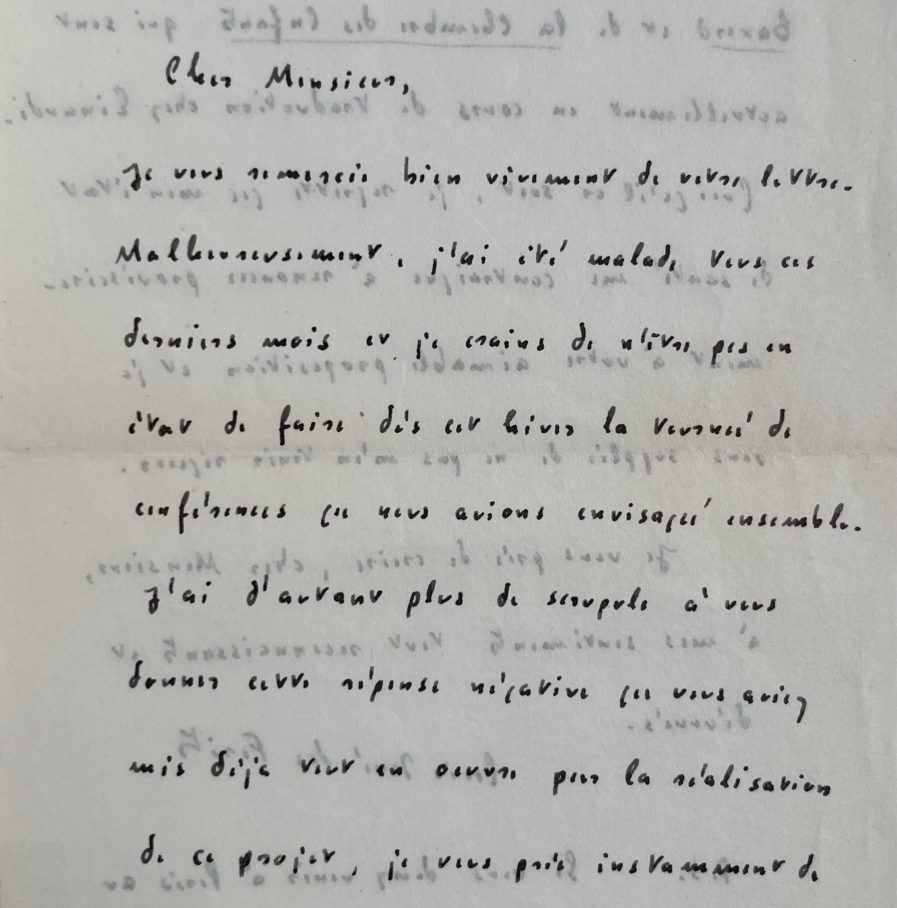 Cher Monsieur,
Je vous remercie bien vivement de votre lettre.
Malheureusement, j'ai été malade tous ces
derniers mois et je crains de n'être pas en
état de faire dès cet hiver la tournée de
conférences que nous avions envisagée ensemble.
J'ai d'autant plus de scrupule à vous
donner cette réponse négative que vous aviez
mis déjà tout en oeuvre pour la réalisation
de ce projet, je vous prie instamment de